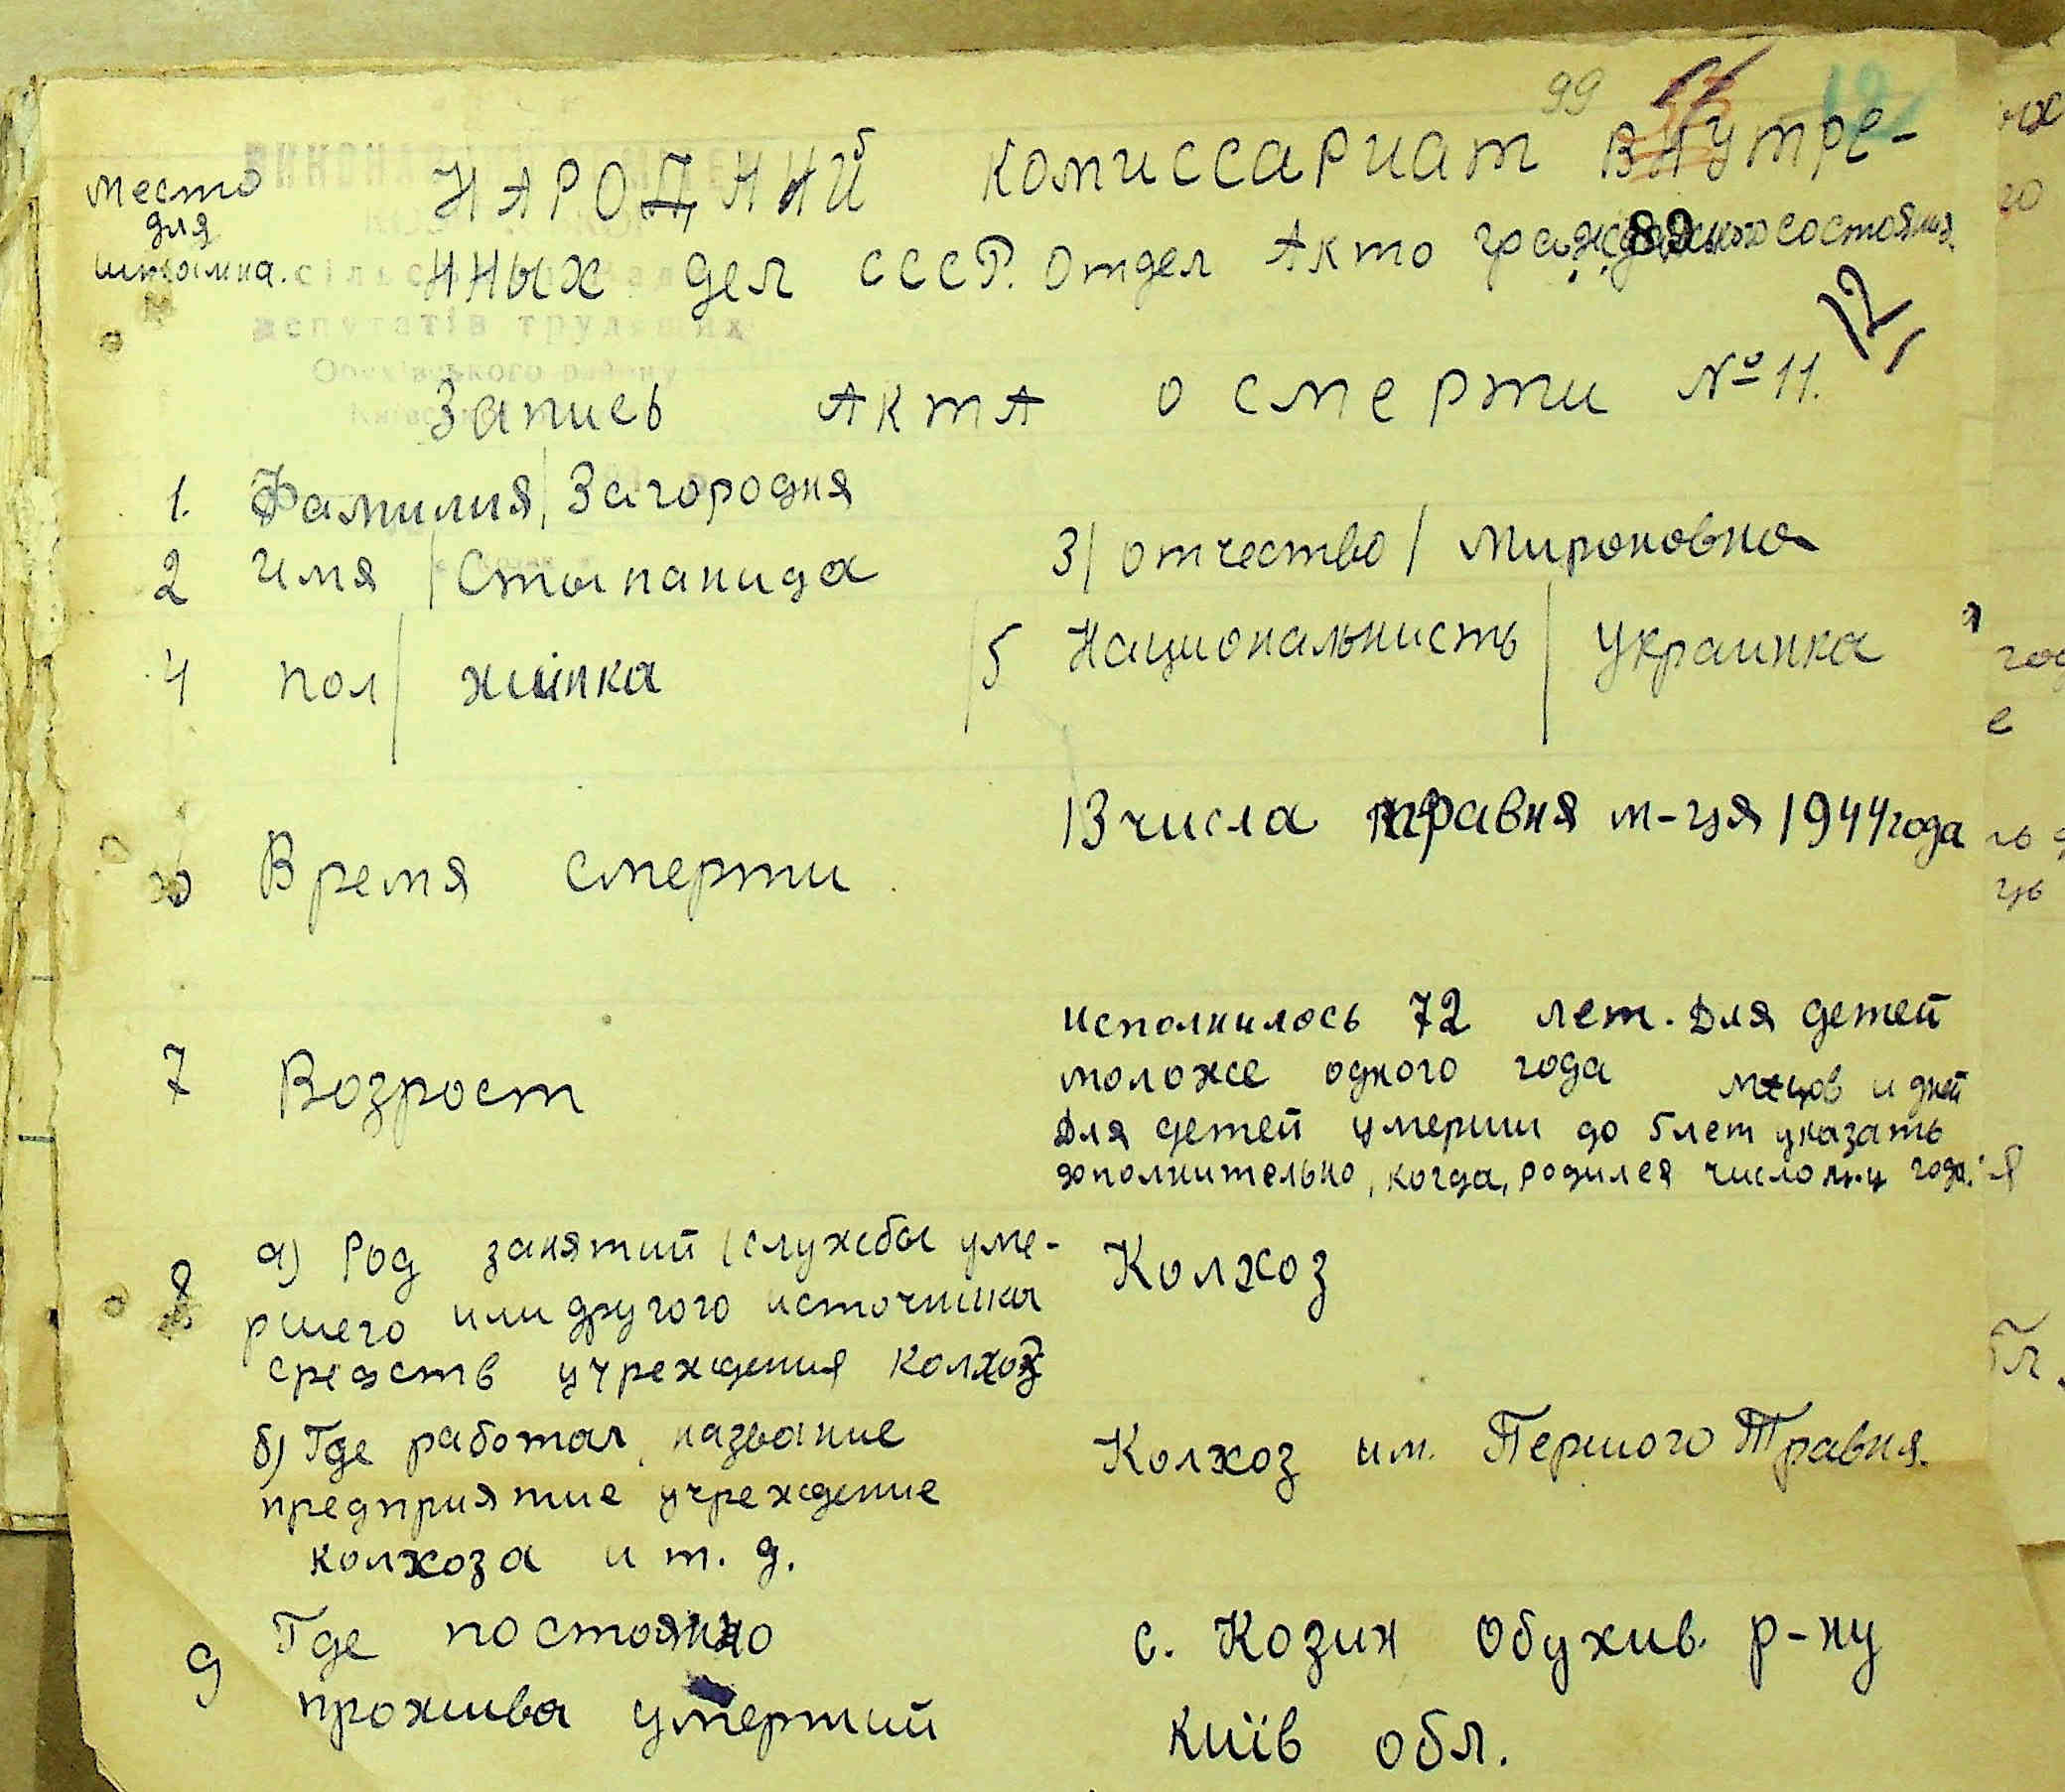 99
Место
для
штампа.
НАРОДНИЙ Комиссариат Внутре-
нных дел СССР. Отдел Акто гражданского состояния
89
12
Запись Акта о смерти № 11.
1. Фамилия / Загородня
2 Имя / Стыпанида 3/ отчество / Мироновна
4 пол / жинка / 5 Национальнисть / Украинка
Время смерти 13 числа травня м-ця 1944 года
7 Возрост исполнилось 72 лет. Для детей
моложе одного года м-цов и дней
Для детей умерши до 5 лет указать
дополнительно, когда, родился число м-ц года.
8 а) Род занятий (службы уме- Колхоз
ршего или другого источника
средств учреждения Колхоз
б) Где работал, название Колхоз им. Першого Травня.
предприятие учреждение
колхоза и т. д.
9 Где постоянно с. Козин Обухив. р-ну
прожива умерший Київ обл.